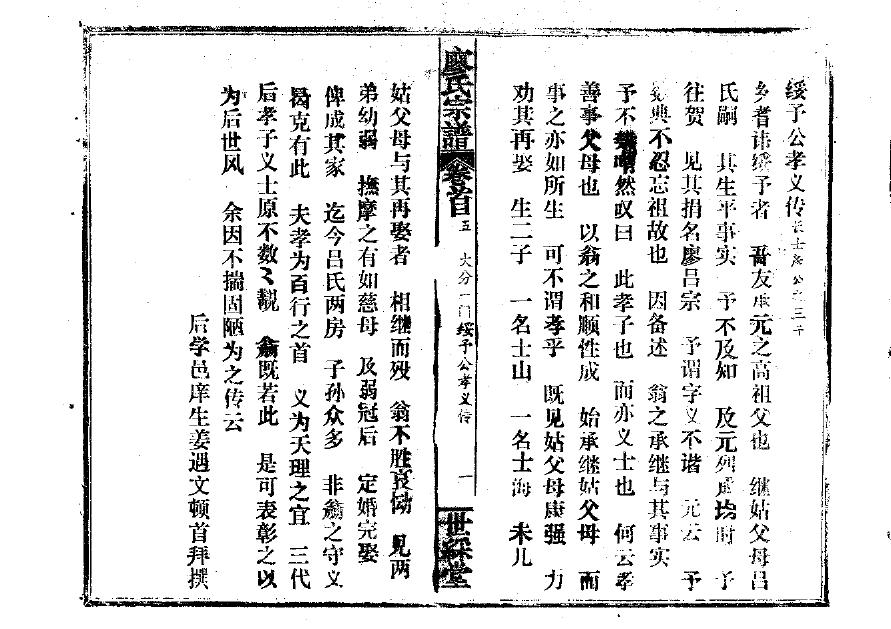 绥予公孝义传
多者讳绥予者 吾友康元之高祖父也 继姑父母吕
氏嗣 其生平事实 予不及知 及元列虞均时 予
往贺 见其捐名廖吕宗 予谓字义不谐 元云 予
典不忍忘祖故也 因备述 翁之承继与其事实
予不然叹曰 此孝子也 而亦义士也 何云孝
善事父母也 以翁之和顺性成 始承继姑父母 而
事之亦如所生 可不谓孝乎 既见姑父母康强 力
劝其再娶 生二子 一名士山 一名士海 未几
廖氏宗谱
卷首
五 大分一门绥予公孝义传 一
世綵堂
姑父母与其再娶者 相继而殁 翁不胜哀恸 见两
弟幼弱 抚摩之有如慈母 及弱冠后 定婚完娶
俾成其家 迄今吕氏两房 子孙众多 非翁之守义
曷克有此 夫孝为百行之首 义为天理之宜 三代
后孝子义士原不数〻觏 翁既若此 是可表彰之以
为后世风 余因不揣固陋为之传云
后学邑庠生姜遇文顿首拜撰